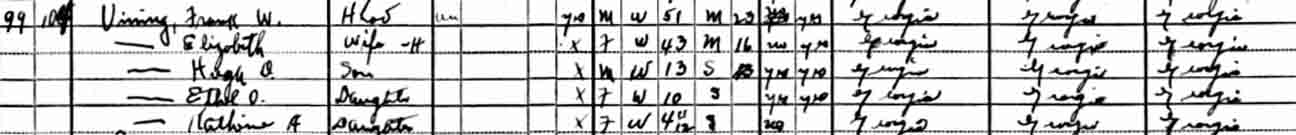 99 Vining, Frank W. Head yes M W 51 M 23 yes Georgia Georgia Georgia
— Elizabeth Wife-H X F W 43 M 16 no yes Georgia Georgia Georgia
— Hugh O. Son X M W 13 S yes yes Georgia Georgia Georgia
— Ethel O. Daughter X F W 10 S yes yes Georgia Georgia Georgia
— Kathrine A Daughter X F W 4 11/12 S Georgia Georgia Georgia